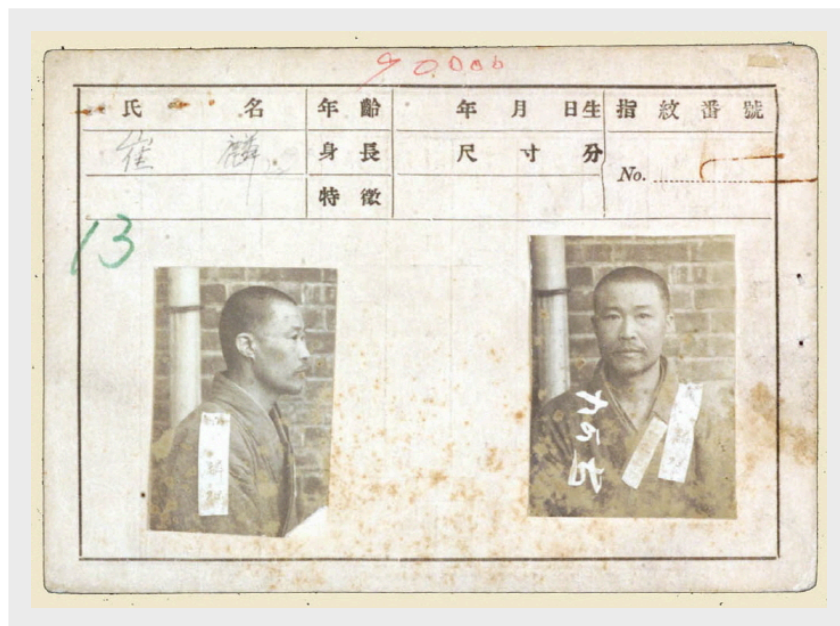 90006
氏 名 年齡 年 月 日生 指紋番號
崔 麟 身長 尺 寸 分 No.
特徵
13